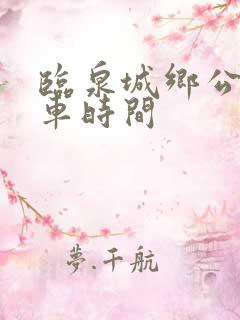 臨泉城鄉公
車時間
夢.千航